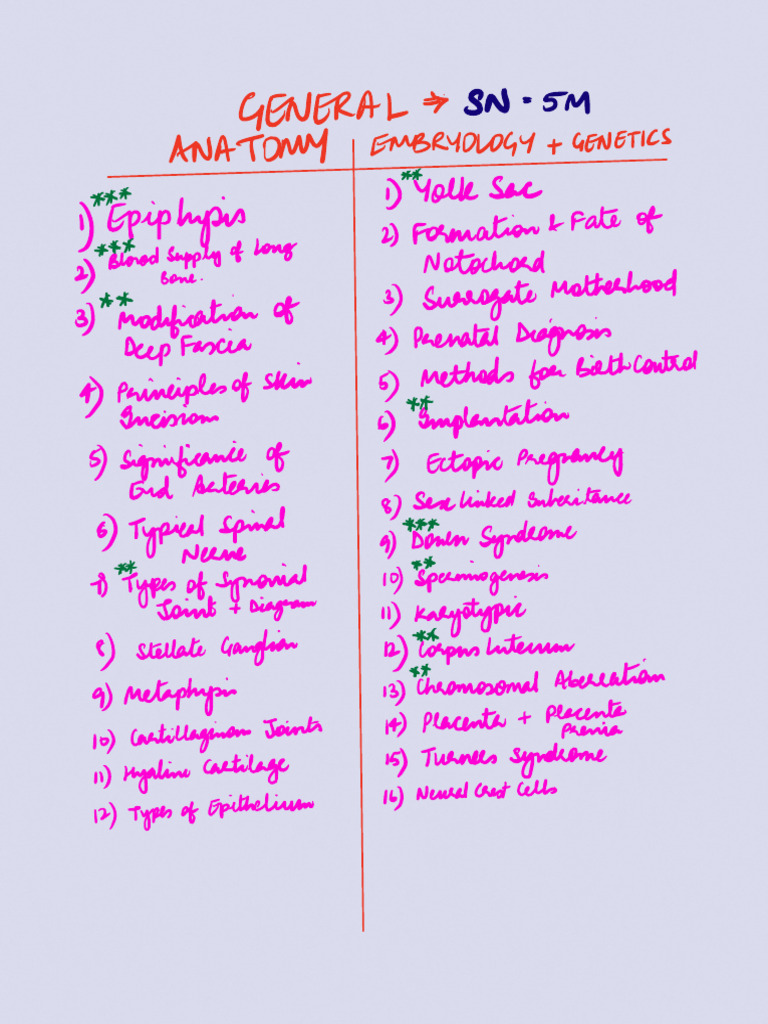 GENERAL → SN - 5M
ANATOMY
1) *** Epiphysis
2) *** Blood Supply of Long
Bone.
3) ** Modification of
Deep Fascia
4) Principles of Skin
Incisions
5) Significance of
End Arteries
6) Typical Spinal
Nerve
7) ** Types of Synovial
Joint + Diagram
8) Stellate Ganglion
9) Metaphysis
10) Cartillaginous Joints
11) Hyaline Cartilage
12) Types of Epithelium
EMBRYOLOGY + GENETICS
1) ** Yolk Sac
2) Formation & Fate of
Notochord
3) Surrogate Motherhood
4) Prenatal Diagnosis
5) Methods for Birth Control
6) ** Implantation
7) Ectopic Pregnancy
8) Sex linked Inheritance
9) *** Down Syndrome
10) ** Spermiogenesis
11) Karyotypic
12) ** Corpus Luteum
13) ** Chromosomal Aberration
14) Placenta + Placenta
Previa
15) Turners Syndrome
16) Neural Crest Cells